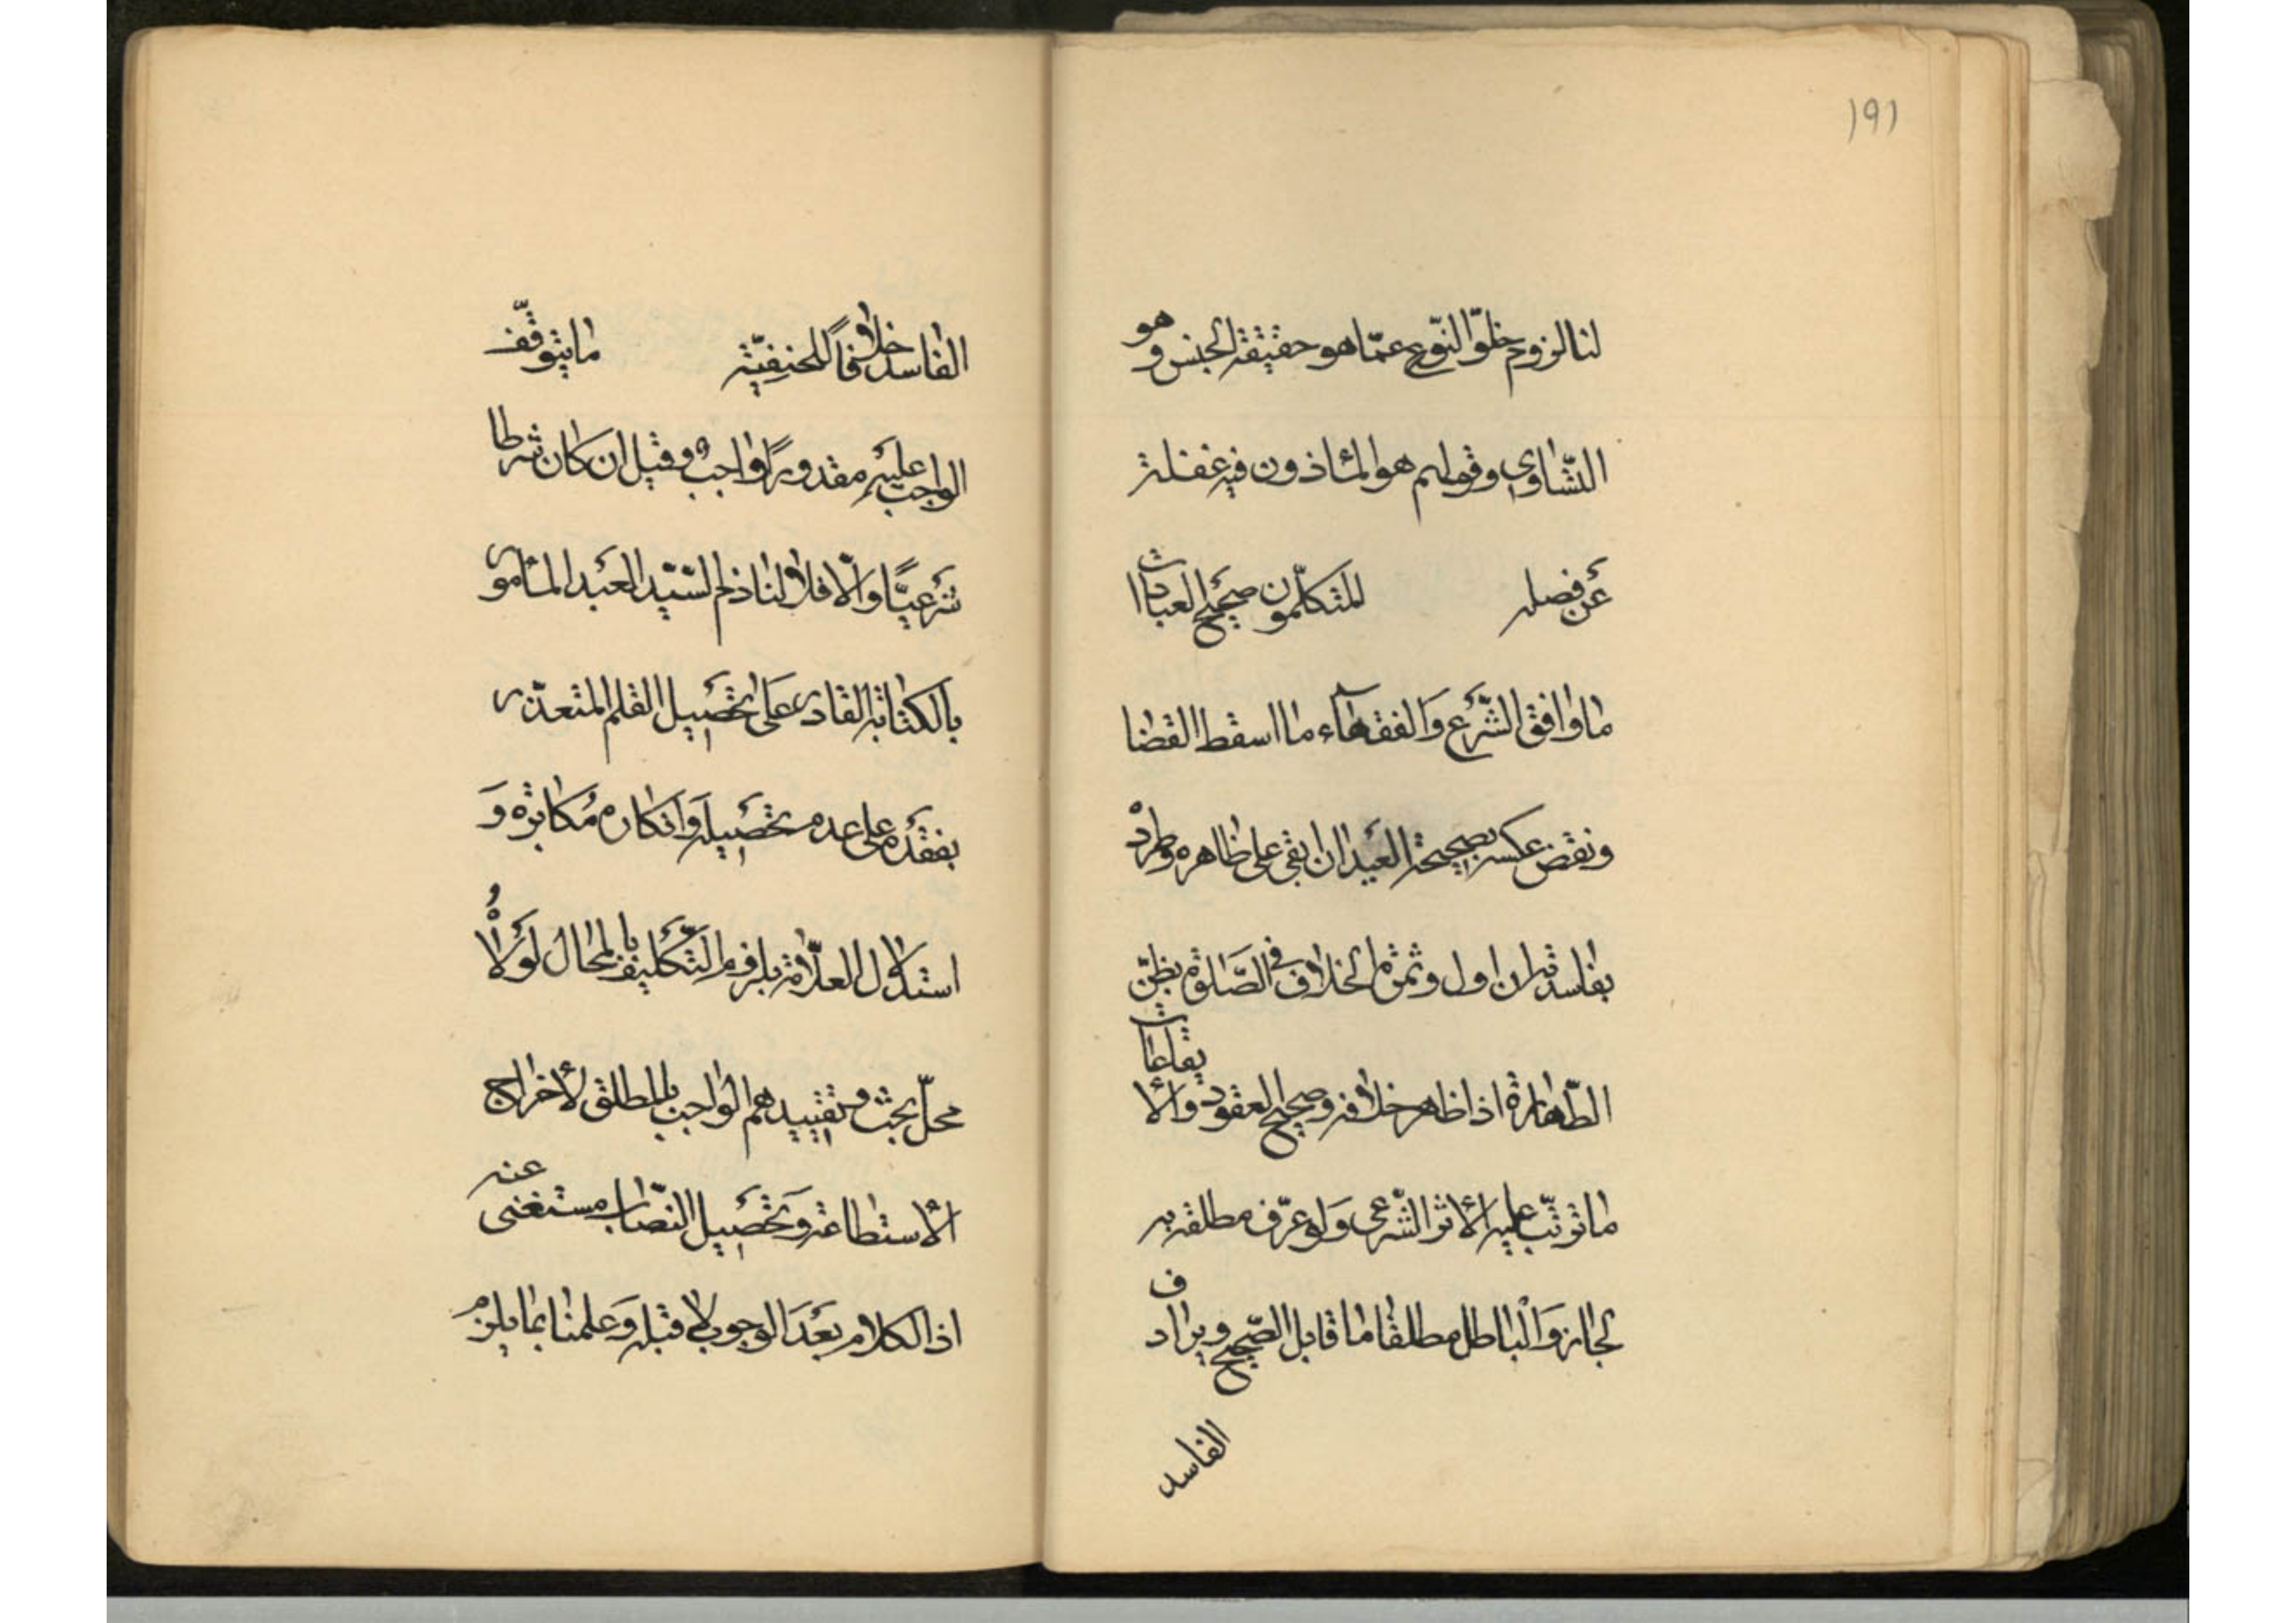 ١٩١
لنا لزوم خلوّ النّوع عمّا هو حقيقة الجنس وهو
التّساوي وقولهم هو المأذون فيه غفلة
عَن فصله للمتكلّمون صحيح العبادات
ما وافق الشّرع وَالفقهاء ما اسقط القضا
ونقض عكسه بصحيحة العيد ان ابقى على ظاهره وطرده
بفاسدته ان اول وثمرة الخلاف في الصّلوة بظنّ
الطّهارة اذا ظهر خلافه وصحيح العقود والايقاعات
ما ترتّب عليه الأثر الشّرعى وَلو عرّف مطلقه به
لجاز وَالباطل مطلقا ما قابل الصّحيح ويرادف
الفاسد
الفاسد خلافاً للحنفيّة ما يتوقّف
الواجب عليه مقدورًا واجب وقيل ان كان شرطا
شرعيًّا وَالّا فلا لنا ذم السّيّد العبد المأمور
بالكتابة القادر عَلى تحصيل القلم المتعذّر
بفقده على عدم تحصيله وَانكاره مُكابرة وَ
استدلال العلّامة بلزوم التّكليف بالمحال لولاهُ
محلّ بحث وتقييدهم الواجب بالمطلق لأخراج
الأستطاعة وَتحصيل النّصاب مستغنى عنه
اذ الكلام بعدَ الوجوب لا قبله وَعلمنا بما يلزم